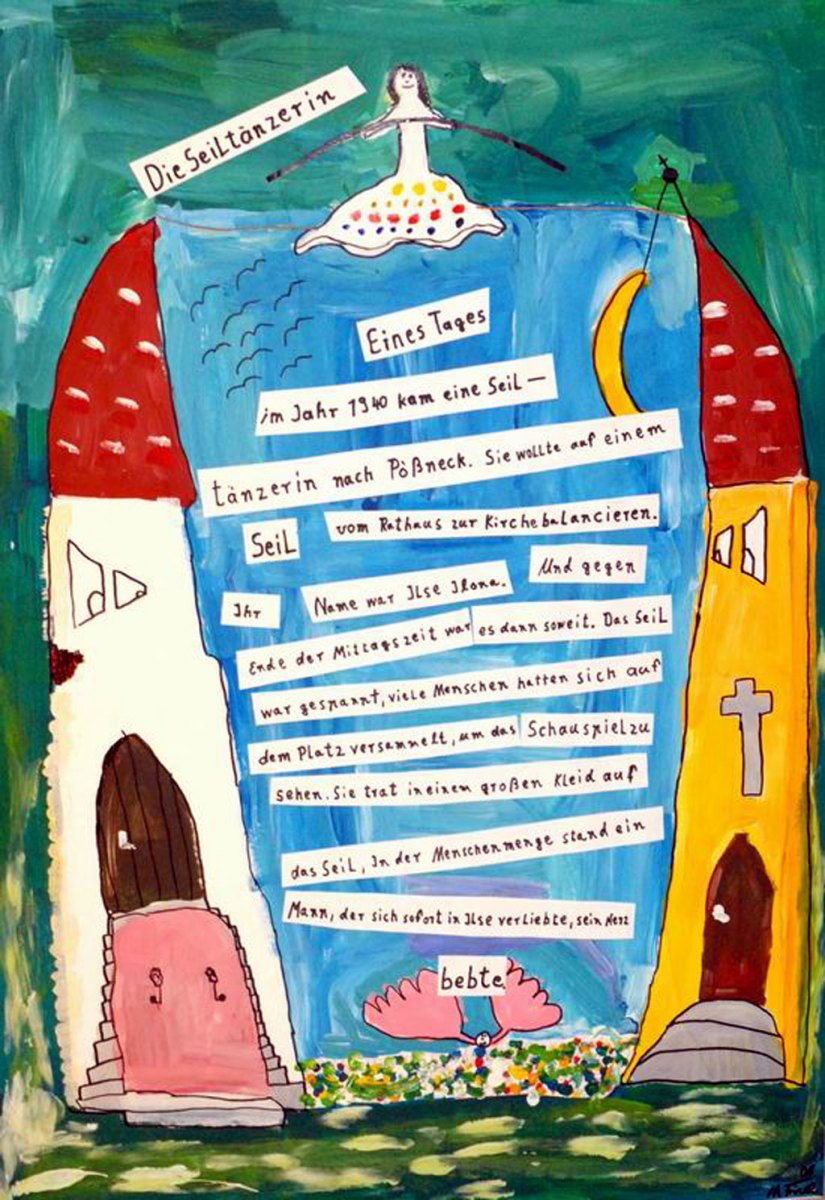 Die Seiltänzerin
Eines Tages
im Jahr 1940 kam eine Seil—
tänzerin nach Pößneck. Sie wollte auf einem
Seil vom Rathaus zur Kirche balancieren.
Ihr Name war Ilse Ilona. Und gegen
Ende der Mittagszeit war es dann soweit. Das Seil
war gespannt, viele Menschen hatten sich auf
dem Platz versammelt, um das Schauspiel zu
sehen. Sie trat in einem großen Kleid auf
das Seil, In der Menschenmenge stand ein
Mann, der sich sofort in Ilse verliebte, sein Herz
bebte